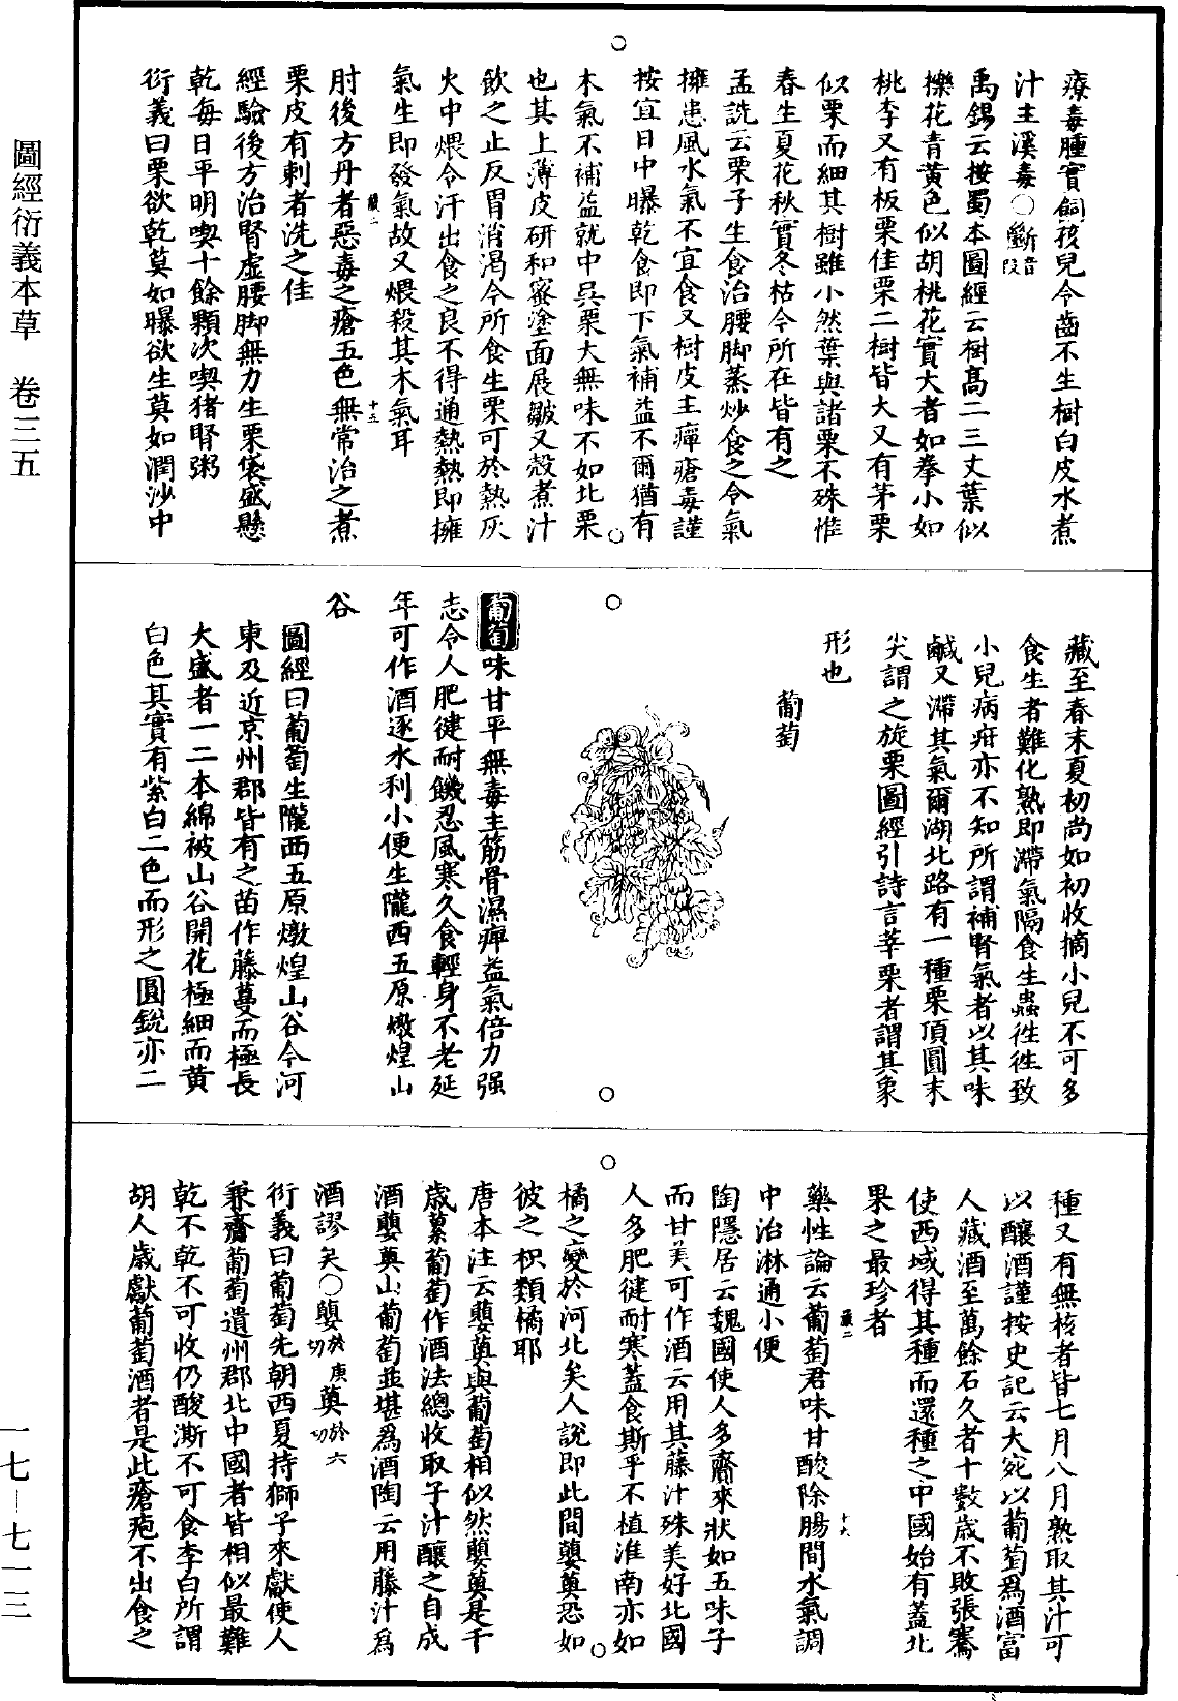 圖經衍義本草　卷三五
療毒腫實飼孩兒令齒不生樹白皮水煮
汁主溪毒○斷音段
禹錫云按蜀本圖經云樹髙二三丈葉似
櫟花青黃色似胡桃花實大者如拳小如
桃李又有板栗佳栗二樹皆大又有茅栗
似栗而細其樹雖小然葉與諸栗不殊惟
春生夏花秋實冬枯今所在皆有之
孟詵云栗子生食治腰脚蒸炒食之令氣
擁患風水氣不宜食又樹皮主癉瘡毒謹
按宜日中曝乾食即下氣補益不爾猶有
木氣不補益就中吳栗大無味不如北栗
也其上薄皮研和蜜塗面展皺又殼煮汁
飲之止反胃消渴今所食生栗可於熱灰
火中煨令汗出食之良不得通熱熱即擁
氣生即發氣故又煨殺其木氣耳
肘後方丹者惡毒之瘡五色無常治之煮
栗皮有刺者洗之佳
經驗後方治腎虛腰脚無力生栗袋盛懸
乾每日平明喫十餘顆次喫猪腎粥
衍義曰栗欲乾莫如曝欲生莫如潤沙中
藏至春末夏初尚如初收摘小兒不可多
食生者難化熟即滯氣隔食生蟲徃徃致
小兒病疳亦不知所謂補腎氣者以其味
鹹又滯其氣爾湖北路有一種栗頂圓末
尖謂之旋栗圖經引詩言莘栗者謂其象
形也
葡萄
葡萄味甘平無毒主筋骨濕痺益氣倍力强
志令人肥健耐饑忍風寒久食輕身不老延
年可作酒逐水利小便生隴西五原燉煌山
谷
圖經曰葡萄生隴西五原燉煌山谷今河
東及近京州郡皆有之苗作藤蔓而極長
大盛者一二本綿被山谷開花極細而黃
白色其實有紫白二色而形之圓銳亦二
種又有無核者皆七月八月熟取其汁可
以釀酒謹按史記云大宛以葡萄爲酒富
人藏酒至萬餘石久者十數歲不敗張騫
使西域得其種而還種之中國始有蓋北
果之最珍者
藥性論云葡萄君味甘酸除腸間水氣調
中治淋通小便
陶隱居云魏國使人多齎來狀如五味子
而甘美可作酒云用其藤汁殊美好北國
人多肥健耐寒蓋食斯乎不植淮南亦如
橘之變於河北矣人說即此間蘡薁恐如
彼之枳類橘耶
唐本注云蘡薁與葡萄相似然蘡薁是千
歲虆葡萄作酒法總收取子汁釀之自成
酒蘡薁山葡萄並堪爲酒陶云用藤汁爲
酒謬矣○蘡於庚切薁於六切
衍義曰葡萄先朝西夏持獅子來獻使人
兼齎葡萄遺州郡北中國者皆相似最難
乾不乾不可收仍酸澌不可食李白所謂
胡人歲獻葡萄酒者是此瘡疱不出食之
一七—七一三